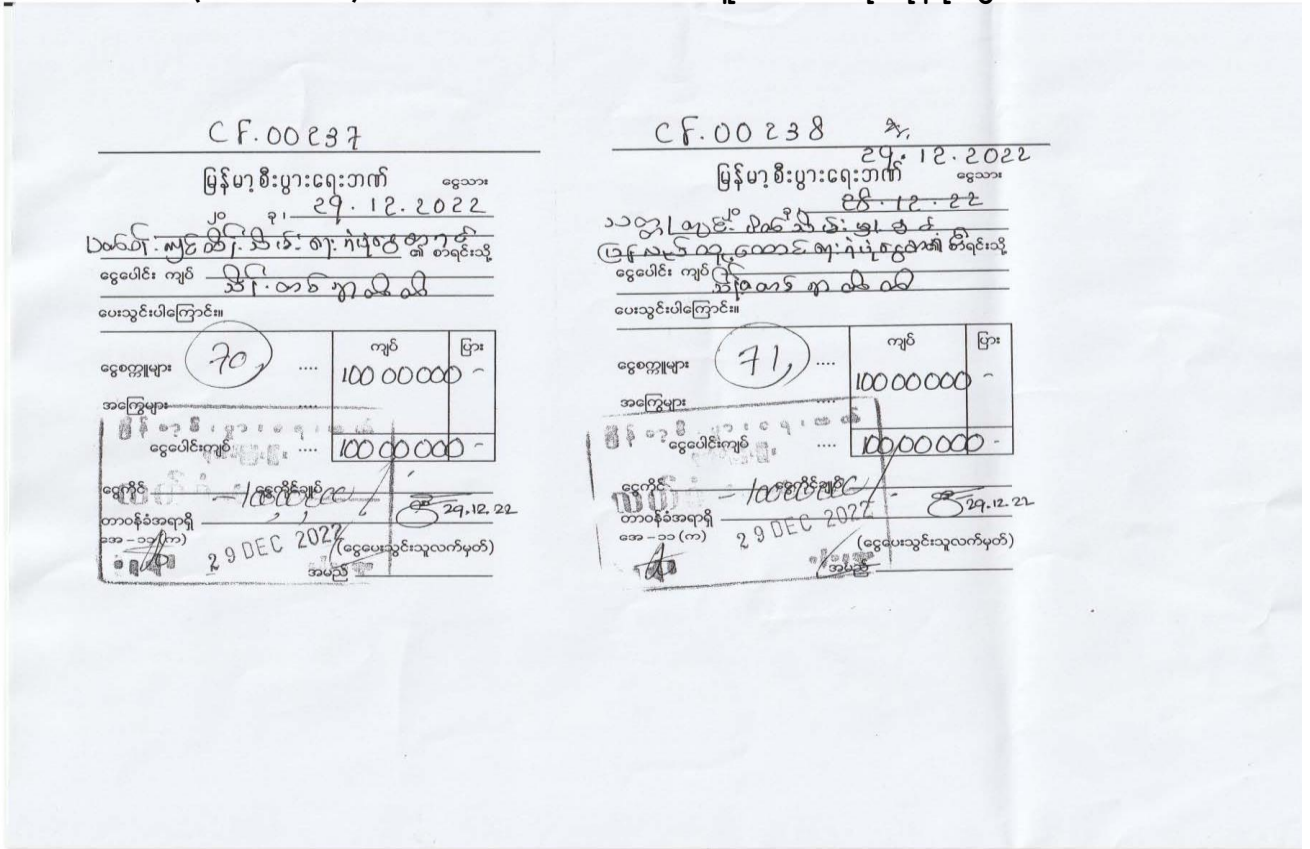 CF.00237
မြန်မာ့စီးပွားရေးဘဏ် ငွေသား
၂၀ ခု၊ 29.12.2022
ပတ်ဝန်းကျင်ထိန်းသိမ်းရေးရံပုံငွေ ၏ စာရင်းသို့
ငွေပေါင်း ကျပ် သိန်းတစ်ရာတိတိ
ပေးသွင်းပါကြောင်း။
ကျပ် ပြား
ငွေစက္ကူများ 70 .... 100 00000 -
အကြွေများ ....
ငွေပေါင်းကျပ် .... 100 00000 -
ငွေကိုင် ငွေကိုင်ချုပ်
တာဝန်ခံအရာရှိ 29.12.22
အေ-၁၁(က) 29 DEC 2022 (ငွေပေးသွင်းသူလက်မှတ်)
အမည်
CF.00238
29.12.2022
မြန်မာ့စီးပွားရေးဘဏ် ငွေသား
၂၀ ခု၊ 28.12.22
သတ္တုတွင်းပိတ်သိမ်းမှုနှင့်
ပြန်လည်ထူထောင်ရေးရံပုံငွေ ၏ စာရင်းသို့
ငွေပေါင်း ကျပ် သိန်းတစ်ရာတိတိ
ပေးသွင်းပါကြောင်း။
ကျပ် ပြား
ငွေစက္ကူများ 71 .... 100 00000 -
အကြွေများ ....
ငွေပေါင်းကျပ် .... 100,00000 -
ငွေကိုင် ငွေကိုင်ချုပ်
တာဝန်ခံအရာရှိ 29.12.22
အေ-၁၁(က) 29 DEC 2022 (ငွေပေးသွင်းသူလက်မှတ်)
အမည်